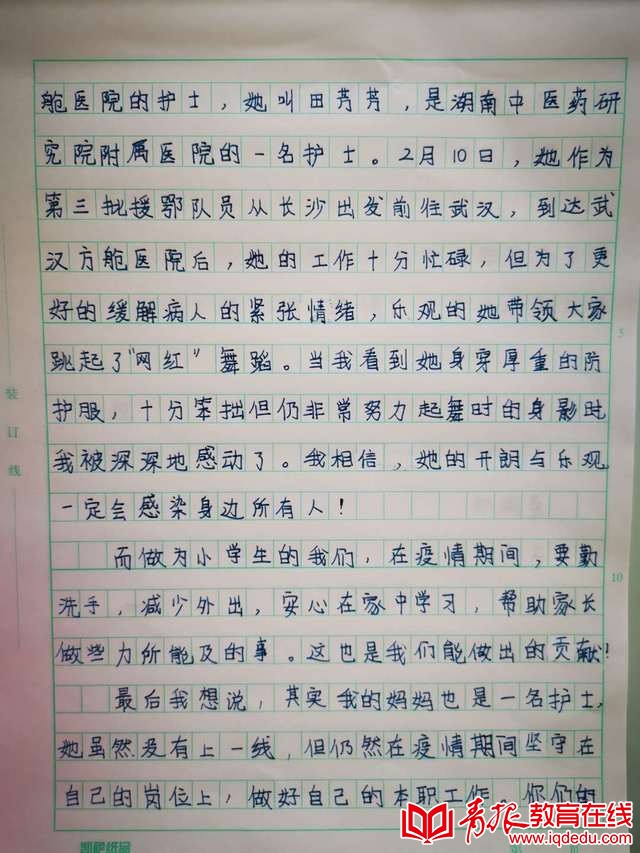 舱医院的护士，她叫田芳芳，是湖南中医药研
究院附属医院的一名护士。2月10日，她作为
第三批援鄂队员从长沙出发前往武汉，到达武
汉方舱医院后，她的工作十分忙碌，但为了更
好的缓解病人的紧张情绪，乐观的她带领大家
跳起了"网红"舞蹈。当我看到她身穿厚重的防
护服，十分笨拙但仍非常努力起舞时的身影时
我被深深地感动了。我相信，她的开朗与乐观
一定会感染身边所有人！
而做为小学生的我们，在疫情期间，要勤
洗手，减少外出，安心在家中学习，帮助家长
做些力所能及的事。这也是我们能做出的贡献！
最后我想说，其实我的妈妈也是一名护士，
她虽然没有上一线，但仍然在疫情期间坚守在
自己的岗位上，做好自己的本职工作。你们的
装订线
5
10
青报教育在线
www.iqdedu.com